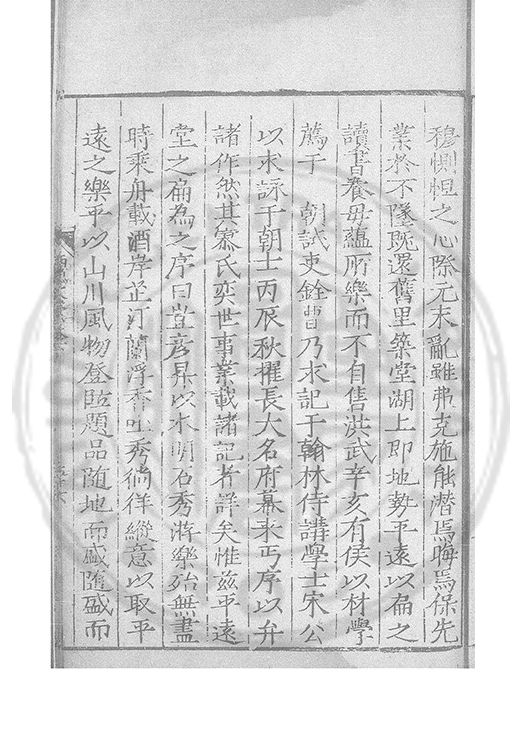 穆惻怛之心際元末亂雖弗克施能潛焉晦焉保先
業於不墜既還舊里築堂湖上即地勢平遠以扁之
讀書養母蘊所樂而不自售洪武辛亥有侯以材學
薦于　朝試吏銓曹乃求記于翰林侍講學士宋公
以求詠于朝士丙辰秋擢長大名府幕來丐序以弁
諸作然其系氏奕世事業載諸記者詳矣惟茲平遠
堂之扁為之序曰豈彥昇以水明石秀將樂殆無盡
時乘舟載酒岸芷汀蘭浮香吐秀徜徉縱意以取平
遠之樂乎以山川風物登臨題品随地而盛匯盛而